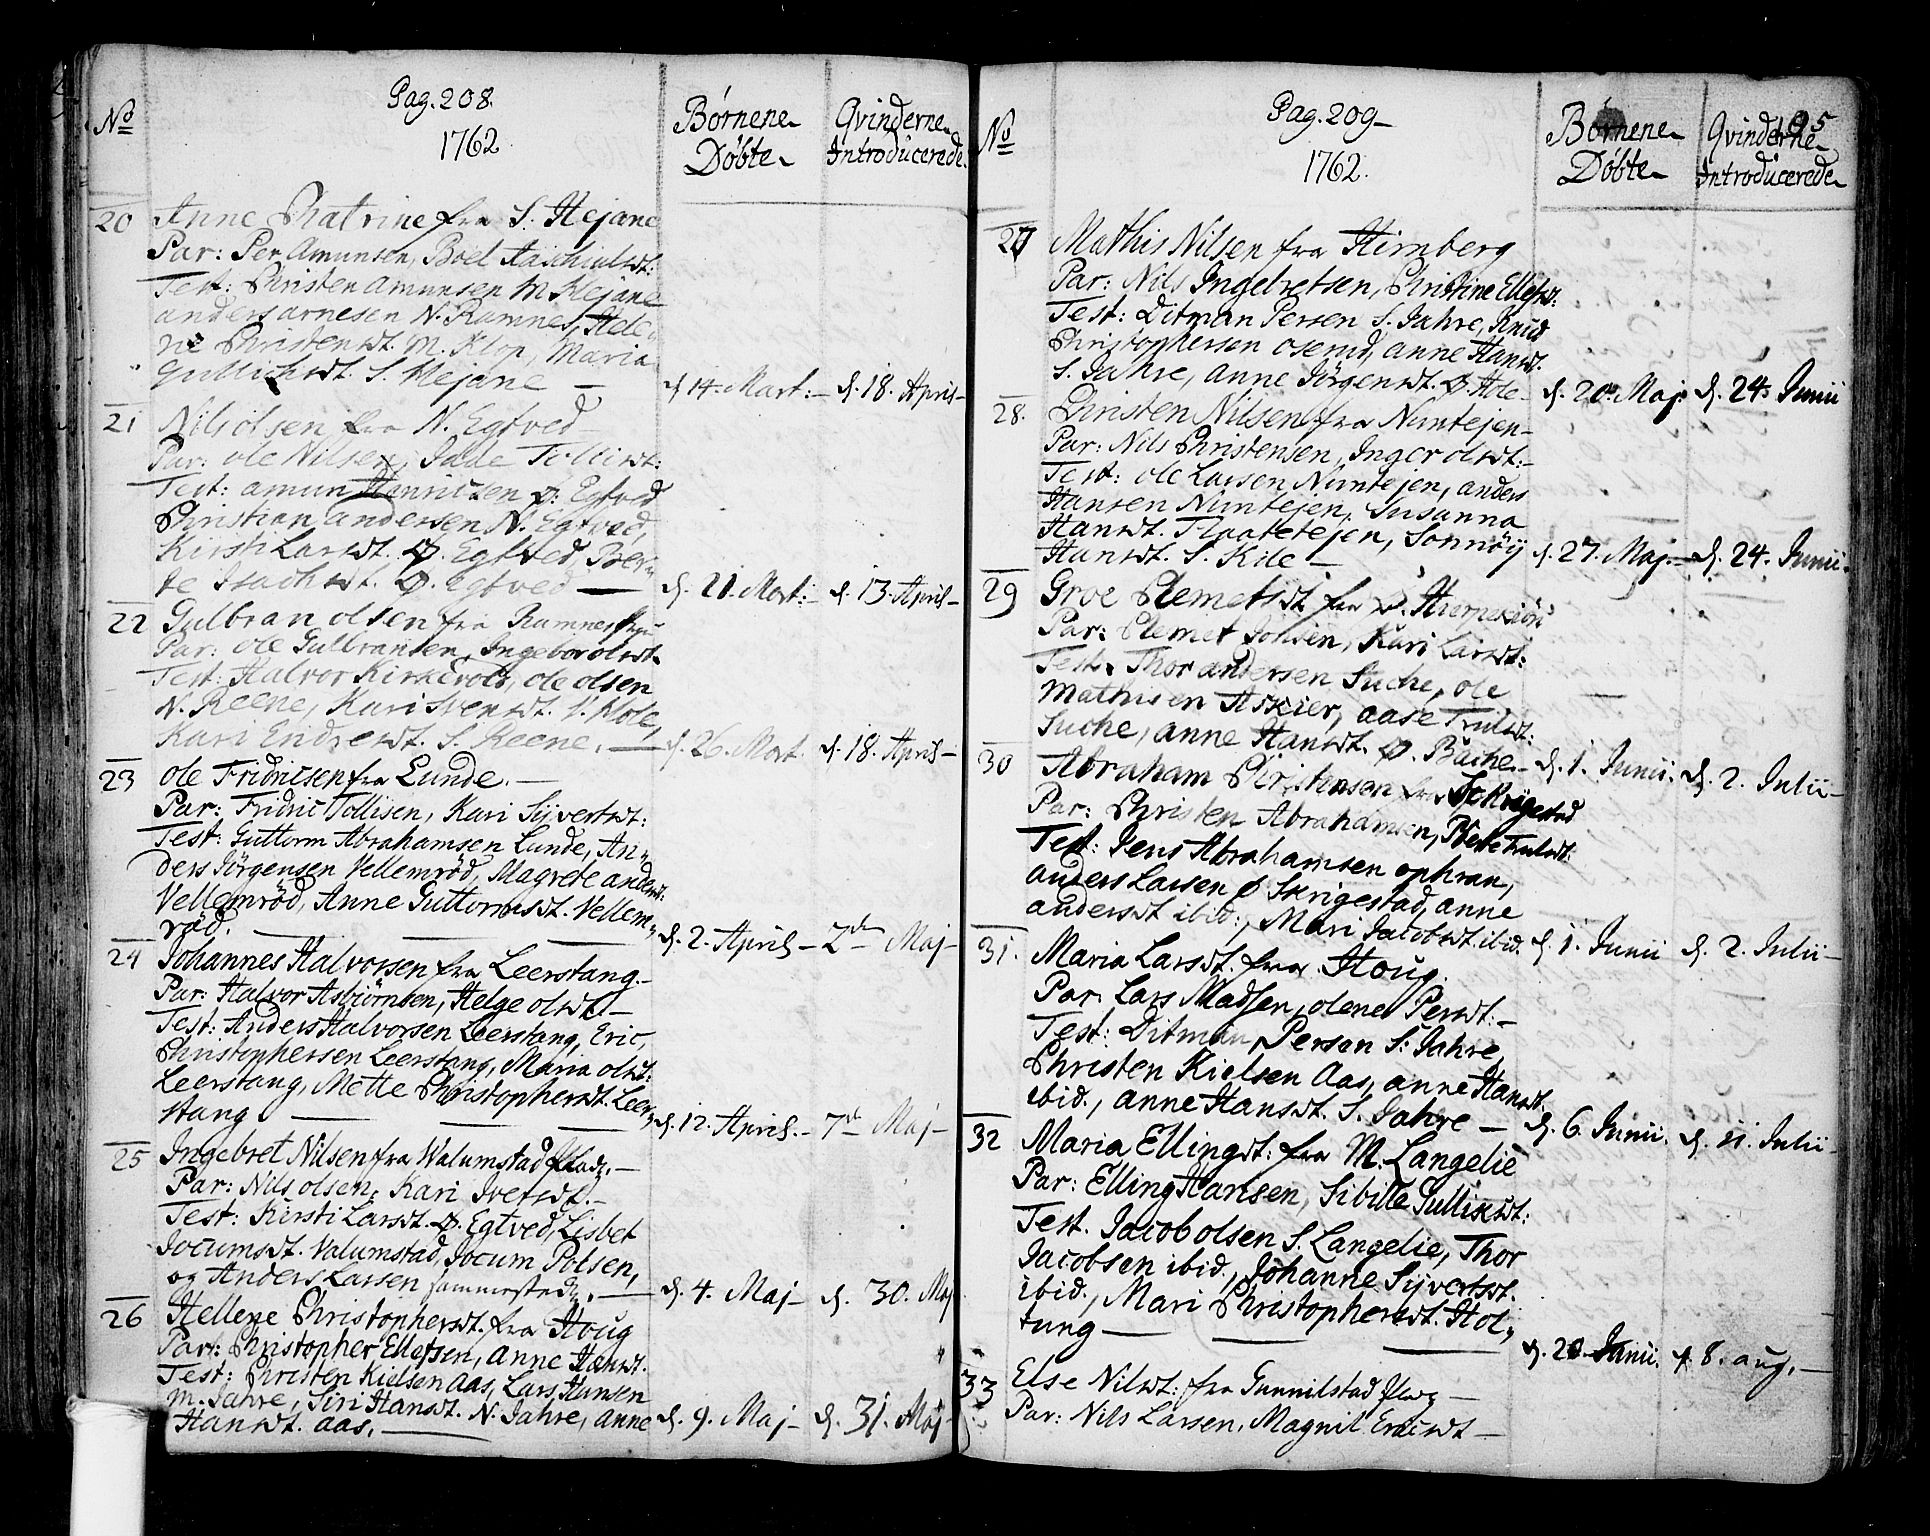 Pag. 208.
No
1762
Børnene Døbte
Qvinderne Introducerede
20 Anne Chatrine fra S. Hejane
Par: Per Amunsen, Boel Haschiulsdt:
Test: Christen Amunsen M. Hejane
anders arnesen N. Ramnes, Hele-
ne Christensdt. M. Klop, Maria
Gullichsdt. S. Hejane — d. 14. Mart: — d. 18. April —
21 Nils olsen fra N. Egtved
Par: ole Nilsen, Jade Tollisdt:
Test: amun Hanricsen Ø: Egtved
Christian andersen N. Egtved,
Kirsti Larsdt. Ø. Egtved, Ber-
te Isachsdt. Ø. Egtved — d. 21. Mart: d. 13. April —
22 Gulbran olsen fra Ramnes
Par: ole Gulbransen, Ingebor olsdt.
Test: Halvor Kirkevold, ole olsen
N. Reene, Kari Svensdt. V. Hole,
Kari Endresdt. S. Reene. — d. 26. Mart. d. 18. April —
23 ole Fridricsen fra Lunde. —
Par: Fridric Tollisen, Kari Sijvertsdt:
Test: Guttorm Abrahamsen Lunde, An-
ders Jörgensen Vellemröd, Magrete andersdt:
Vellemröd, Anne Guttormsdt. Vellem-
röd. — d. 2. April — 2de Maj —
24 Johannes Halvorsen fra Leerstang. —
Par: Halvor Asbiörnsen, Helge olsdt —
Test: Anders Halvorsen Leerstang, Eric
Christophersen Leerstang, Maria olsdt:
Leerstang, Mette Christophersdt. Leer-
stang — d. 12. April. — 7de Maj —
25 Ingebret Nilsen fra Walumstad —
Par: Nils olsen, Kari Iversdt. —
Test: Kirsti Larsdt. Ø. Egtved, Lisbet
Jocumsdt. Valumstad, Jocum Polsen,
og Anders Larsen — d. 4. Maj — d. 30. Maj
26 Hellene Christophersdt. fra Houg
Par: Christopher Ellefsen, anne Hansdt.
Test: Christen Kielsen Aas, Lars Hansen
M. Jahre, Siri Hansdt. N. Jahre, anne
Hansdt. aas. — d. 9. Maj — d. 31. Maj
Pag. 209 —
No
1762.
Børnene Døbte
Qvinderne Introducerede
27 Mathis Nilsen fra Himberg
Par: Nils Ingebretsen, Christine Ellefsdt:
Test: Ditman Persen S. Jahre, Knud
Christophersen oserud, anne Hansdt.
S. Jahre, Anne Jörgensdt. Ø. Hole — d. 20. Maj: d. 24. Junii
28. Christen Nilsen fra Nuntejen —
Par: Nils Christensen, Inger olsdt: —
Test: ole Larsen Nuntejen, anders
Hansen Nuntejen, Susanna
Hansdt. Flaatetejen, Sonnöij
Hansdt. S. Kile — d. 27. Maj. — d. 24. Junii.
29 Groe Clemetsdt. fra Ø.
Par: Clemet Johsen, Kari Larsdt:
Test. Thor andersen Suche, ole
Mathisen Askier, aase Trulsdt:
Suche, anne Hansdt. Ø. Bache — d. 1. Junii. d. 2. Julii —
30 Abraham Christensen fra Skrigestad
Par: Christen Abrahamsen, Trulsdt:
Test: Jens Abrahamsen ophran,
anders Larsen Ø Skrigestad, anne
andersdt ibid:, Mari Jacobsdt. ibid. d. 1. Junii d. 2. Julii —
31. Maria Larsdt. fra Houg.
Par: Lars Madsen, olene Persdt. —
Test: Ditman Persen S. Jahre,
Christen Kielsen Aas, anne Hansdt.
ibid., anne Hansdt. S. Jahre — d. 6. Junii. d. 11. Julii —
32 Maria Ellingsdt: fra M. Langelie
Par: Elling Hansen, Sibille Gullixdt:
Test. Jacob olsen S. Langelie, Thor
Jacobsen ibid., Johanne Sijvertsdt.
ibid., Mari Christophersdt. Hol-
tung — d. 20 Junii. d. 8. aug. —
33 Else Nilsdt: fra Gunnilstad —
Par: Nils Larsen, Magnil Ericsdt —